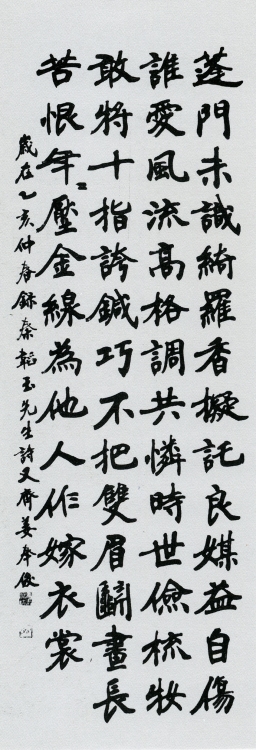 蓬門未識綺羅香擬託良媒益自傷
誰愛風流高格調共憐時世儉梳妝
敢將十指誇鍼巧不把雙眉鬪畫長
苦恨年〻壓金線為他人作嫁衣裳
歲在乙亥仲春錄秦韜玉先生詩又齊姜奉俊